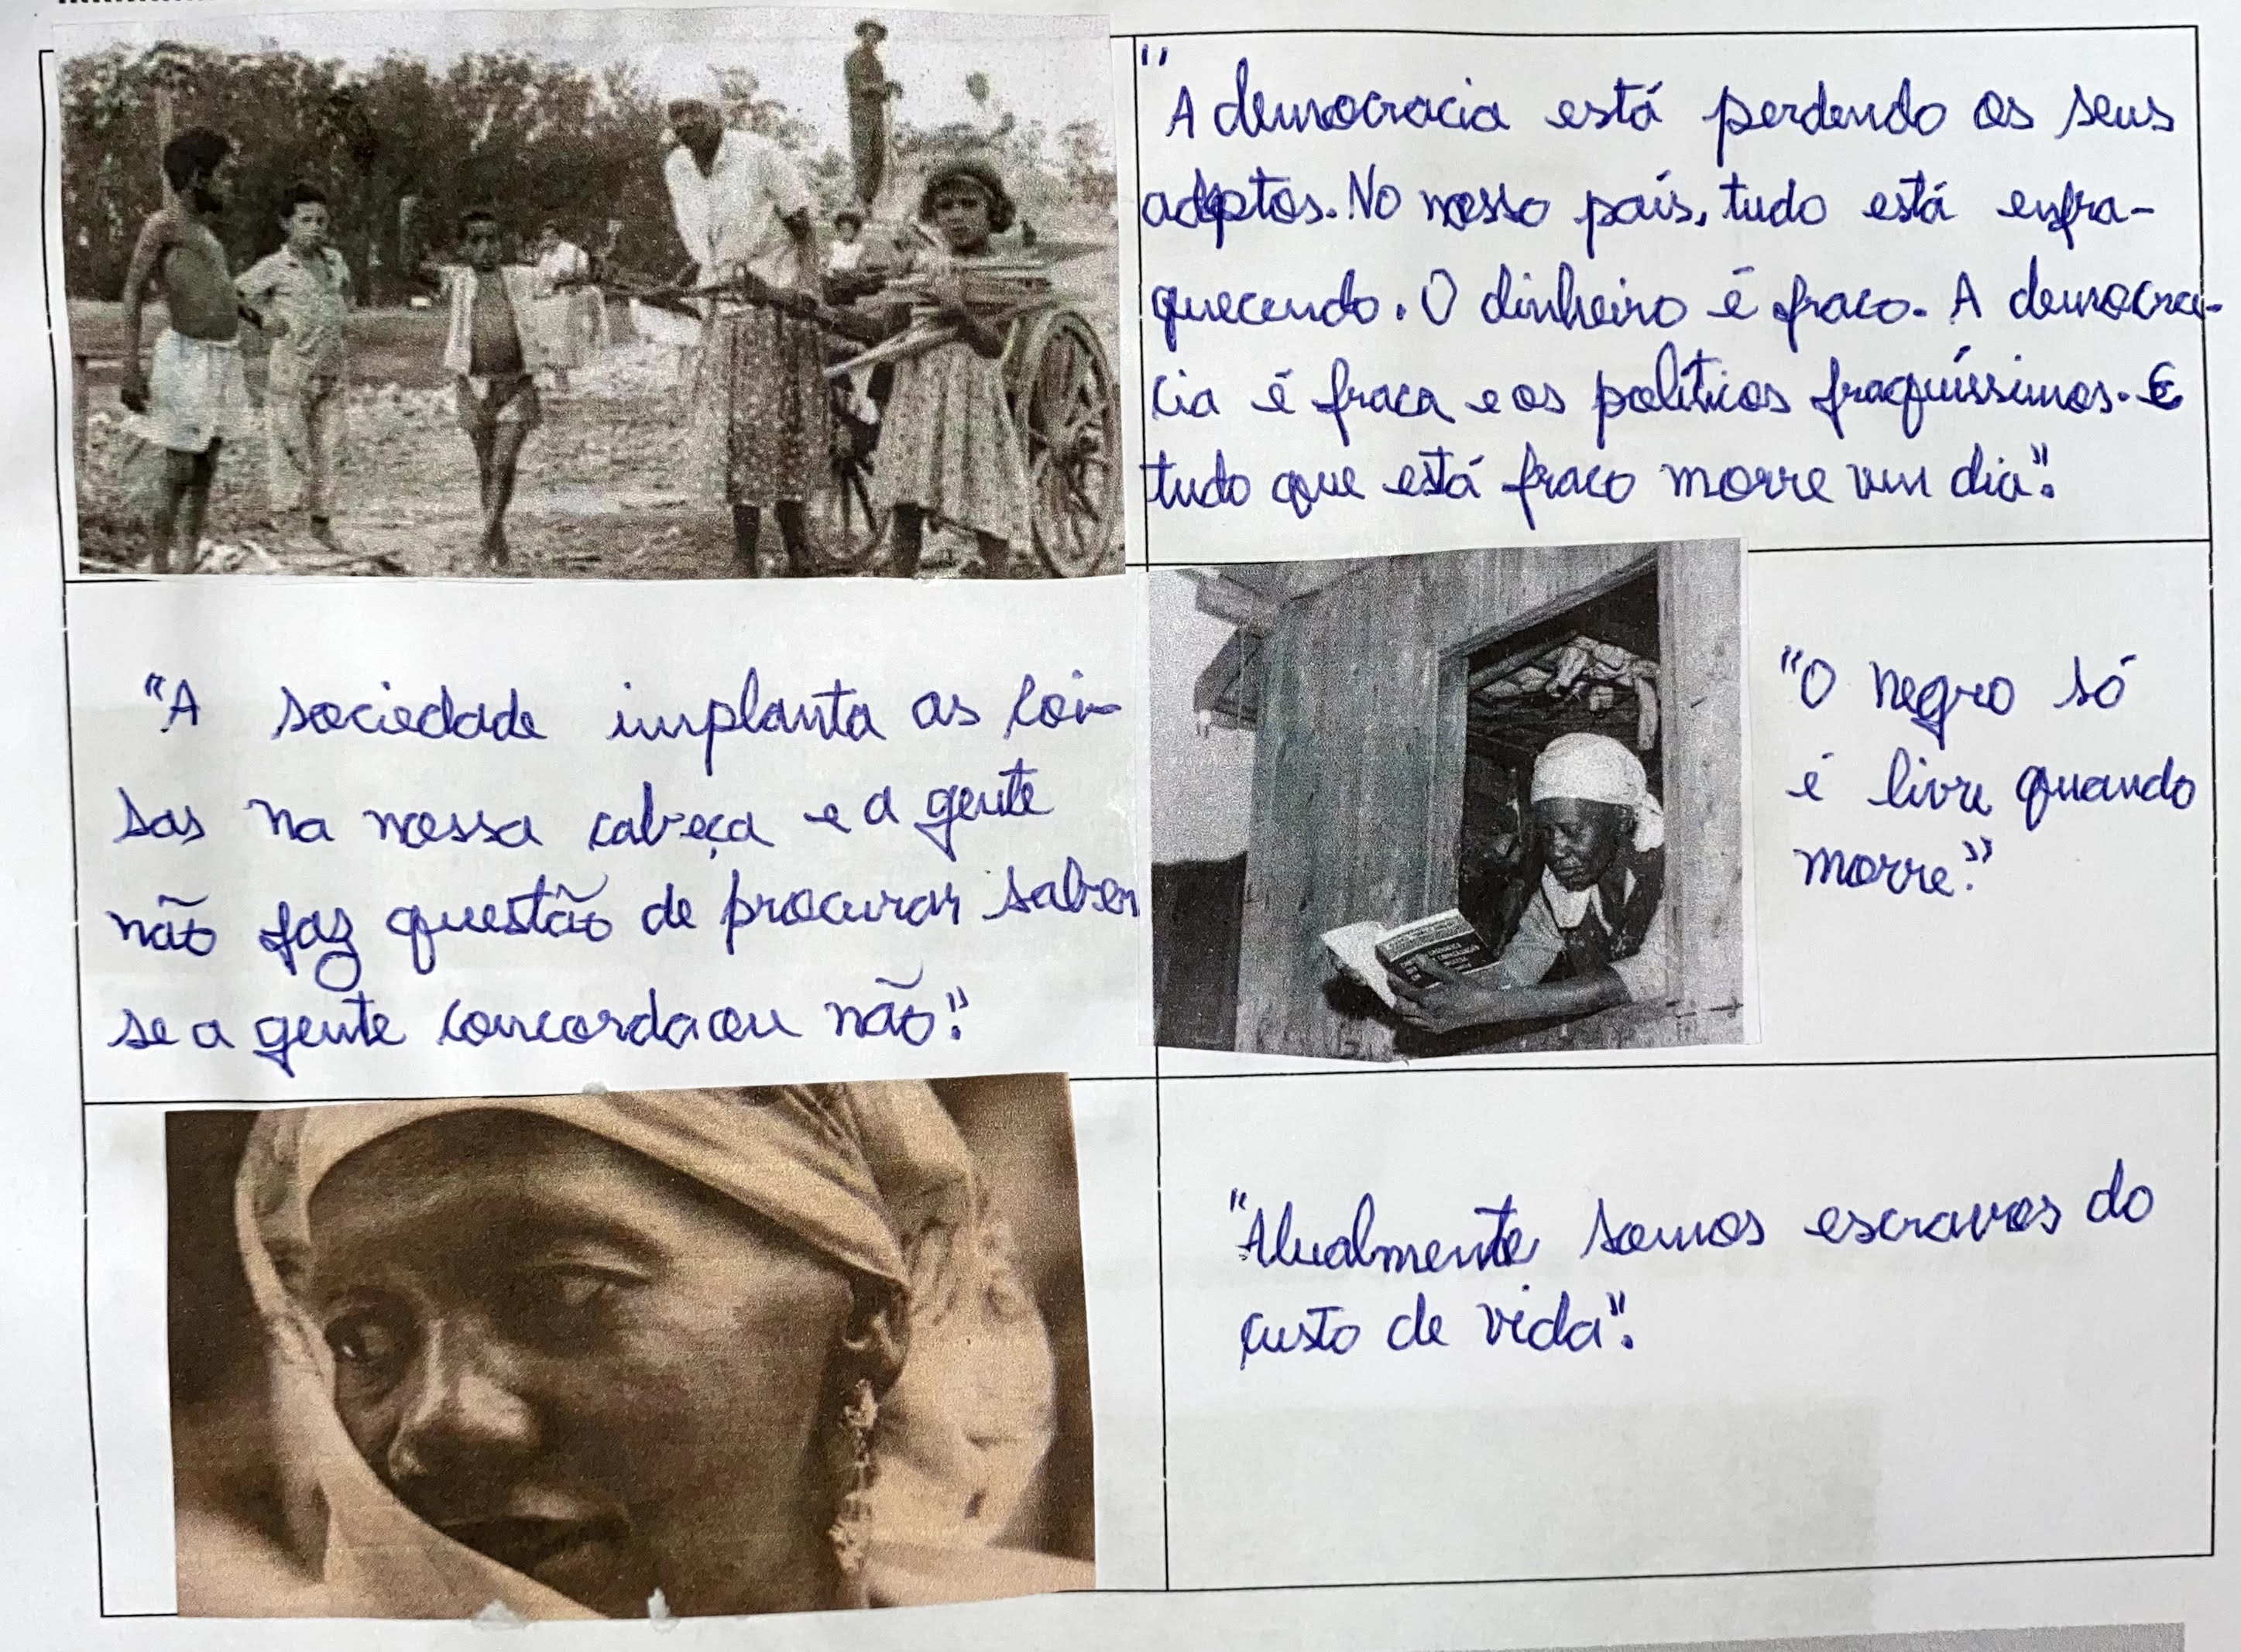 "A democracia está perdendo os seus
adeptos. No nosso país, tudo está enfra-
quecendo. O dinheiro é fraco. A democra-
cia é fraca e os políticos fraquíssimos. E
tudo que está fraco morre um dia".
"A sociedade implanta as coi-
sas na nossa cabeça e a gente
não faz questão de procurar saber
se a gente concorda ou não."
"O negro só
é livre quando
morre."
"Atualmente somos escravos do
custo de vida".